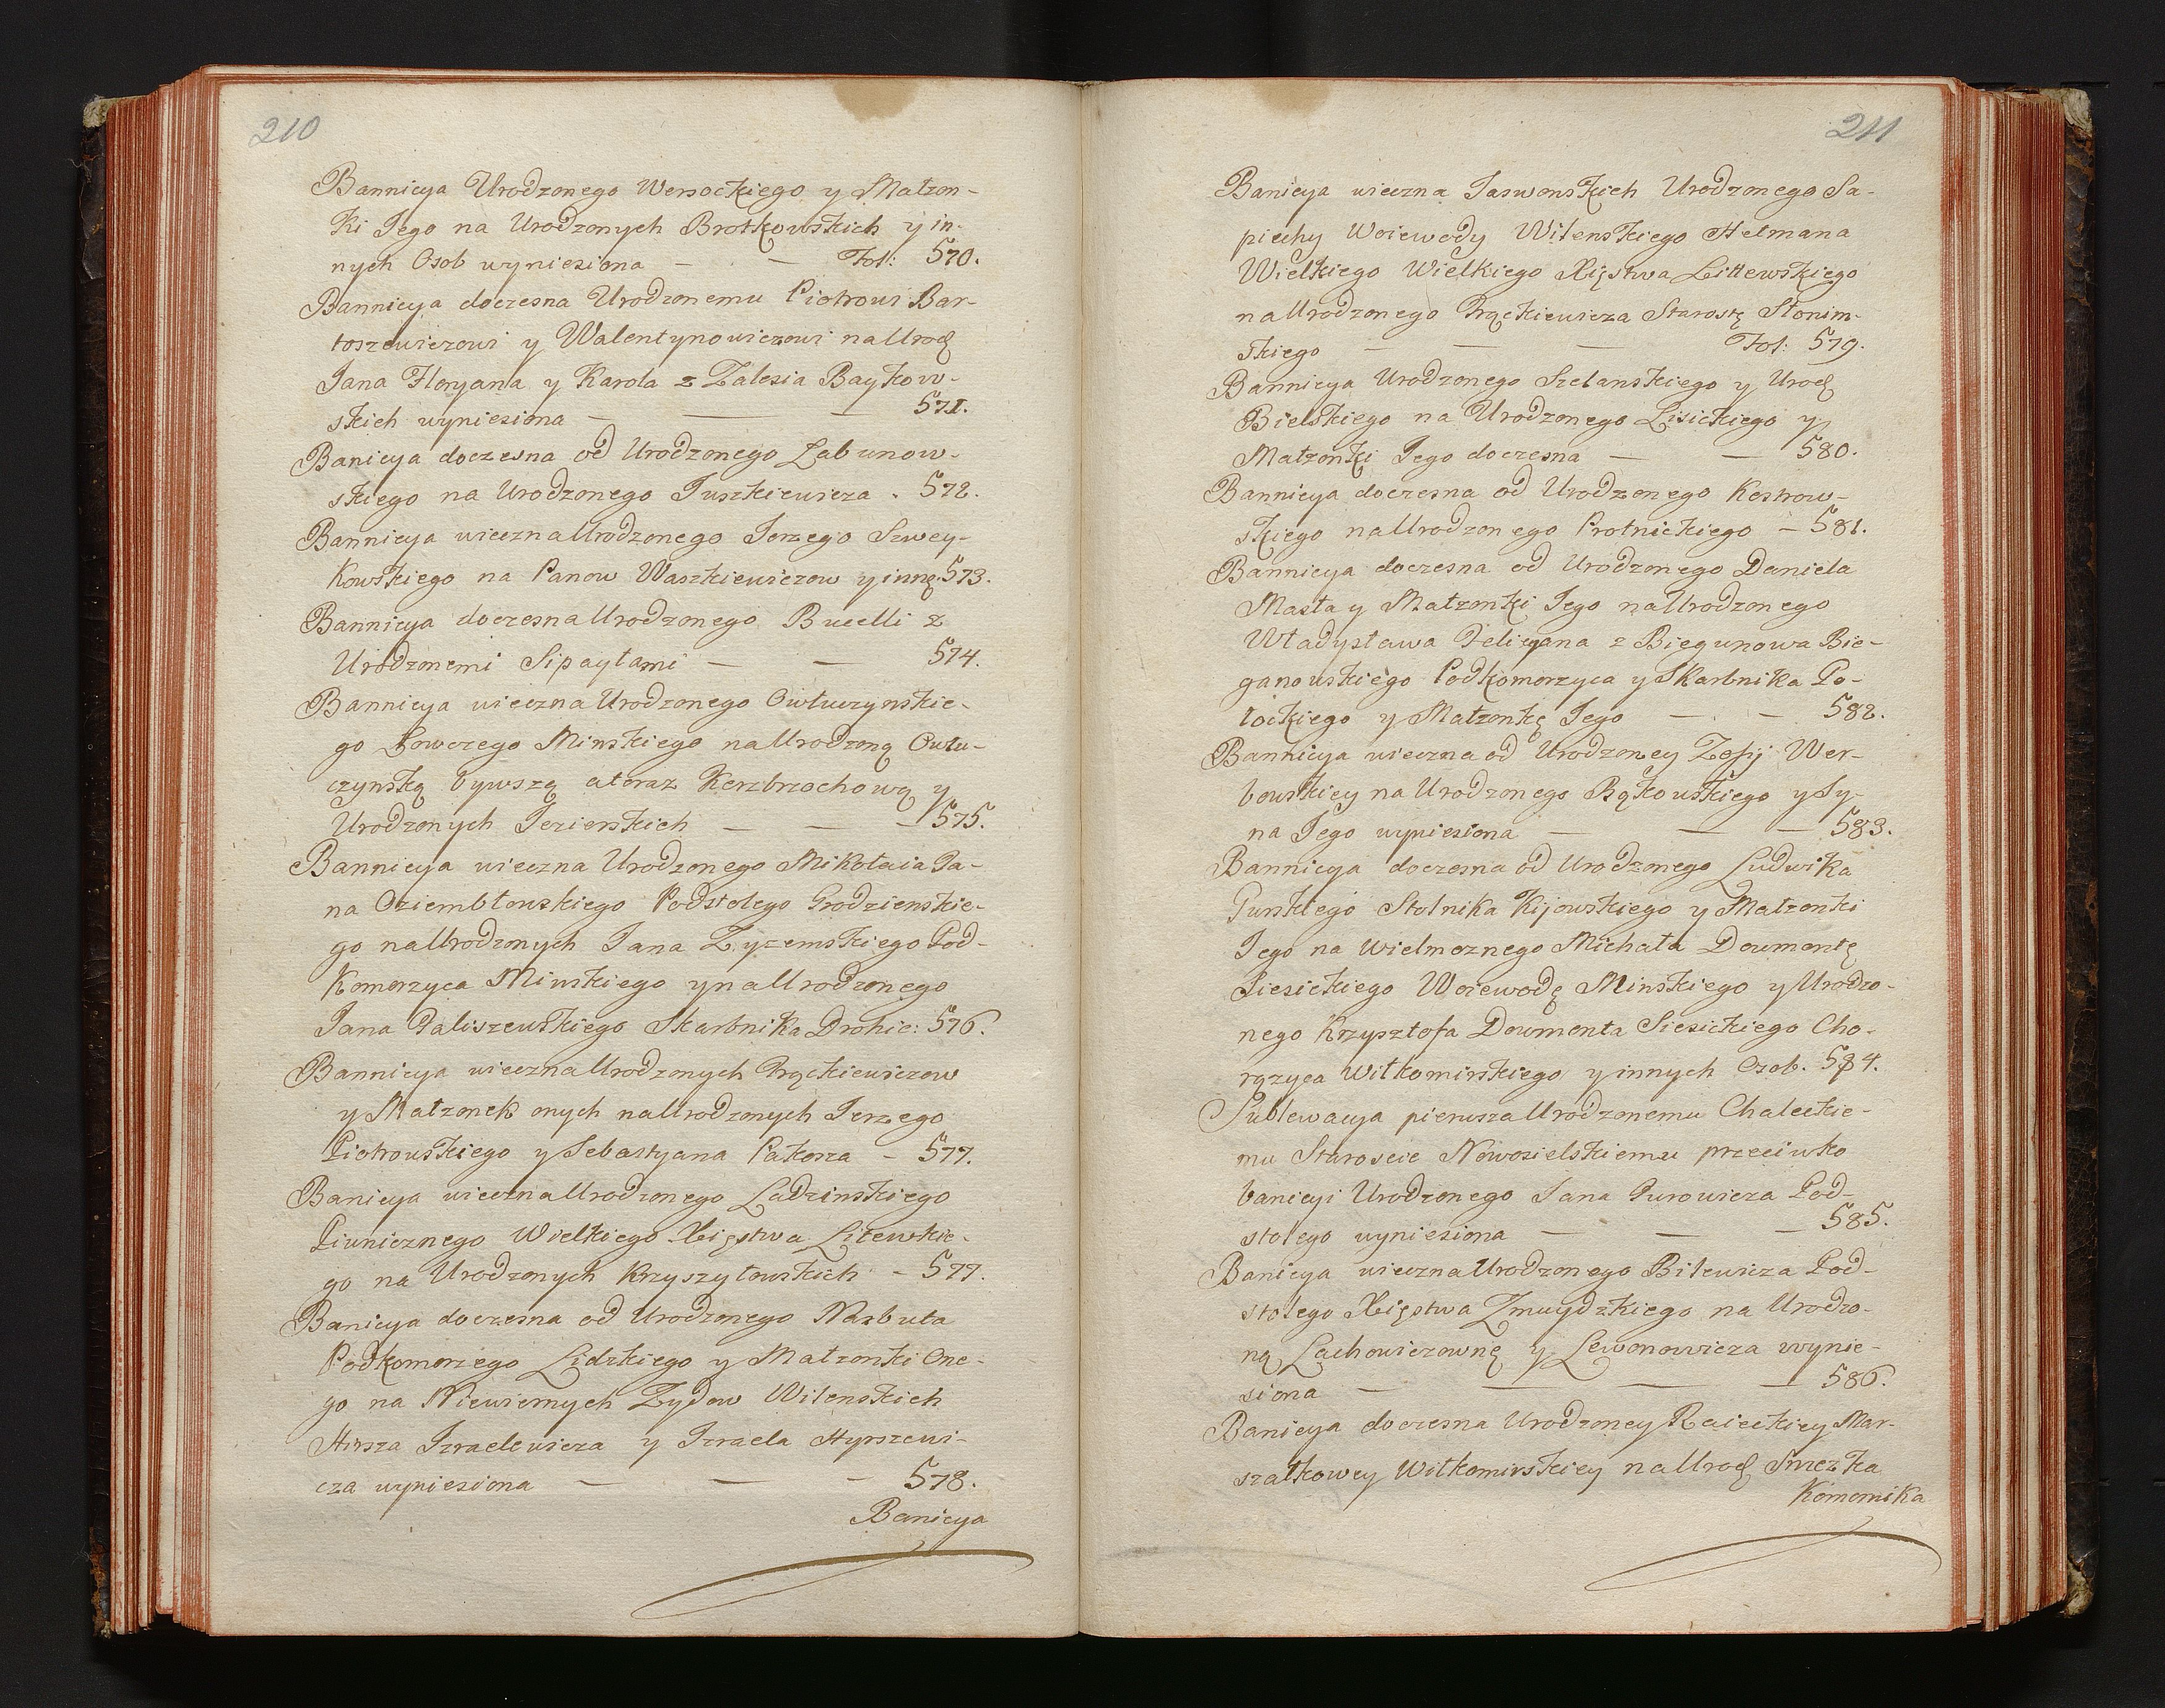 210
Bannicya Urodzonego Wersockiego y Małzon-
ki Jego na Urodzonych Brotkowskich y in-
nych Osob wyniesiona — — Fol: 570.
Bannicya doczesna Urodzonemu Piotrowi Bar-
toszewiczowi y Walentynowiczowi na Urod
Jana Floryana y Karola z Zalesia Baykow-
skich wyniesiona — — — 571.
Banicya doczesna od Urodzonego Łabunow-
skiego na Urodzonego Juszkiewicza . 572.
Bannicya wieczna Urodzonego Jerzego Szwey-
kowskiego na Panow Waszkiewiczow y inną. 573.
Bannicya doczesna Urodzonego Bucelli z
Urodzonemi Sipaytami — — 574.
Bannicya wieczna Urodzonego Owłuczynskie-
go Łowczego Minskiego na Urodzoną Owłu-
czynską bywszą ateraz Kerzbrzochową y
Urodzonych Jezierskich — — — 575.
Bannicya wieczna Urodzonego Mikołaia Pa-
na Oziembłowskiego Podstolego Grodzienskie-
go na Urodzonych Jana Zyzemskiego Pod-
komorzyca Minskiego y na Urodzonego
Jana Paliszewskiego Skarbnika Drohic: 576.
Bannicya wieczna Urodzonych Prąckiewiczow
y Małzonek onych na Urodzonych Jerzego
Piotrowskiego y Sebastyana Pakosza – 577.
Banicya wieczna Urodzonego Ladzinskiego
Piwnicznego Wielkiego Xięstwa Litewkie-
go na Urodzonych Krzyszyłowskich – 577.
Banicya doczesna od Urodzonego Narbuta
Podkomorzego Lidzkiego y Małzonki One-
go na Niewiernych Zydow Wilenskich
Hirsza Izraelewicza y Izraela Hyrszewi-
cza wyniesiona — — — 578.
Banicya
211
Banicya wieczna Jaswonskich Urodzonego Sa-
piehy Woiewody Wilenskiego Hetmana
Wielkiego Wielkiego Xięstwa Littewskiego
na Urodzonego Prąckiewicza Starostę Słonim-
skiego — — — Fol: 579.
Bannicya Urodzonego Szelanskiego y Urod
Bielskiego na Urodzonego Lisickiego y
Małzonki Jego doczesna — — 580.
Bannicya doczesna od Urodzonego Kostrow-
skiego na Urodzonego Protnickiego – 581.
Bannicya doczesna od Urodzonego Daniela
Masła y Małzonki Jego na Urodzonego
Władysława Felicyana z Biegunowa Bie-
ganowskiego Podkomorzyca y Skarbnika Po-
łockiego y Małzonkę Jego — — 582.
Bannicya wieczna od Urodzoney Zofij Wer-
bowskiey na Urodzonego Bąkowskiego y Sy-
na Jego wyniesiona — — — 583.
Bannicya doczesna od Urodzonego Ludwika
Gurskiego Stolnika Kijowskiego y Małzonki
Jego na Wielmoznego Michała Dowmontę
Siesickiego Woiewodę Minskiego y Urodzo-
nego Krzysztofa Dowmonta Siesickiego Cho-
rązyca Wiłkomirskiego y innych Osob. 584.
Sublewacya pierwsza Urodzonemu Chaleckie-
mu Staroscie Nowosielskiemu przeciwko
banicyi Urodzonego Jana Gurowicza Pod-
stolego wyniesiona — — — 585.
Banicya wieczna Urodzonego Bilewicza Pod-
stolego Xięstwa Zmuydzkiego na Urodzo-
ną Lachowiczownę y Lewonowicza wynie-
siona — — — — 586.
Banicya doczesna Urodzoney Raieckiey Mar-
szałkowey Wiłkomirskiey na Urod Srzezka
Komornika